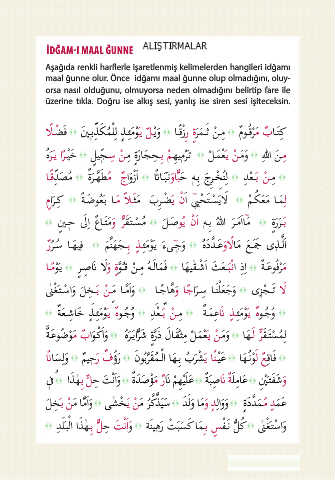 İDĞAM-I MAAL ĞUNNE ALIŞTIRMALAR
Aşağıda renkli harflerle işaretlenmiş kelimelerden hangileri idğamı
maal ğunne olur. Önce idğamı maal ğunne olup olmadığını, oluy-
orsa nasıl olduğunu, olmuyorsa neden olmadığını belirtip fare ile
üzerine tıkla. Doğru ise alkış sesi, yanlış ise siren sesi işiteceksin.
كِتَابٌ مَرْقُومٌ مِنْ ثَمَرَةٍ رِزْقًا وَيْلٌ يَوْمَئِذٍ لِلْمُكَذِّبِينَ فَضْلًا
مِنَ اللهِ وَمَنْ يَعْمَلْ تَرْمِيهِمْ بِحِجَارَةٍ مِنْ سِجِّيلٍ خَيْرًا يَرَهُ
مِنْ بَعْدِ لِنُخْرِجَ بِهِ حَبًّا وَنَبَاتًا أَزْوَاجٌ مُطَهَّرَةٌ مُصَدِّقًا
لِمَا مَعَكُمْ لَا يَسْتَحْيِي اَنْ يَضْرِبَ مَثَلًا مَا بَعُوضَةً كِرَامٍ
بَرَرَةٍ مَا أَمَرَ اللهُ بِهِ اَنْ يُوصَلَ مُسْتَقَرٌّ وَمَتَاعٌ اِلَى حِينٍ
اَلَّذِى جَمَعَ مَالًا وَعَدَّدَهُ وَجِىءَ يَوْمَئِذٍ بِجَهَنَّمَ فِيهَا سُرُرٌ
مَرْفُوعَةٌ اِذِ انْبَعَثَ اَشْقٰيهَا فَمَالَهُ مِنْ قُوَّةٍ وَلَا نَاصِرٍ يَوْمًا
لَا تَجْزِى وَجَعَلْنَا سِرَاجًا وَهَّاجًا وَاَمَّا مَنْ بَخِلَ وَاسْتَغْنٰى
وُجُوهٌ يَوْمَئِذٍ نَاعِمَةٌ مِنْ بَعْدِ وُجُوهٌ يَوْمَئِذٍ خَاشِعَةٌ
لِمُسْتَقَرٍّ لَهَا وَمَنْ يَعْمَلْ مِثْقَالَ ذَرَّةٍ شَرًّا يَرَهُ وَاَكْوَابٌ مَوْضُوعَةٌ
فَاقِعٌ لَوْنُهَا عَيْنًا يَشْرَبُ بِهَا الْمُقَرَّبُونَ رَؤُفٌ رَحِيمٌ وَلِسَانًا
وَشَفَتَيْنِ عَامِلَةٌ نَاصِبَةٌ عَلَيْهِمْ نَارٌ مُؤْصَدَةٌ وَاَنْتَ حِلٌّ بِهٰذَا فِى
عَمَدٍ مُمَدَّدَةٍ وَوَالِدٍ وَمَا وَلَدَ سَيَذَّكَّرُ مَنْ يَخْشٰى وَاَمَّا مَنْ بَخِلَ
وَاسْتَغْنٰى كُلُّ نَفْسٍ بِمَا كَسَبَتْ رَهِينَةٌ وَاَنْتَ حِلٌّ بِهٰذَا الْبَلَدِ